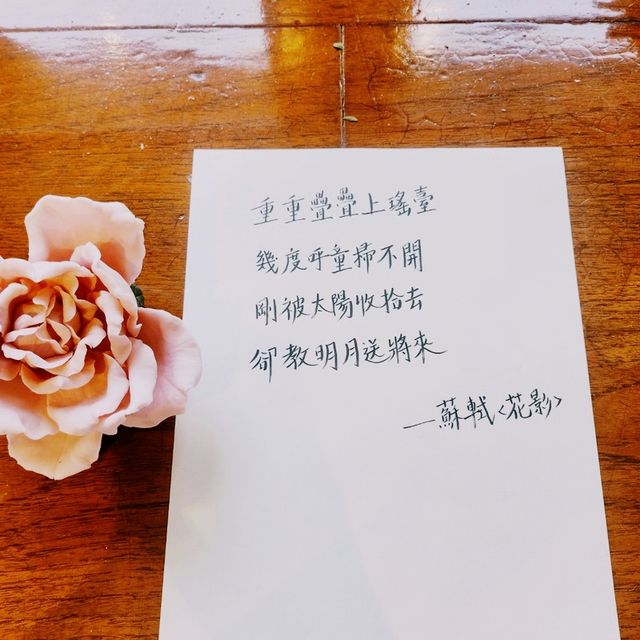 重重疊疊上瑤臺
幾度呼童掃不開
剛被太陽收拾去
卻教明月送將來
—蘇軾<花影>